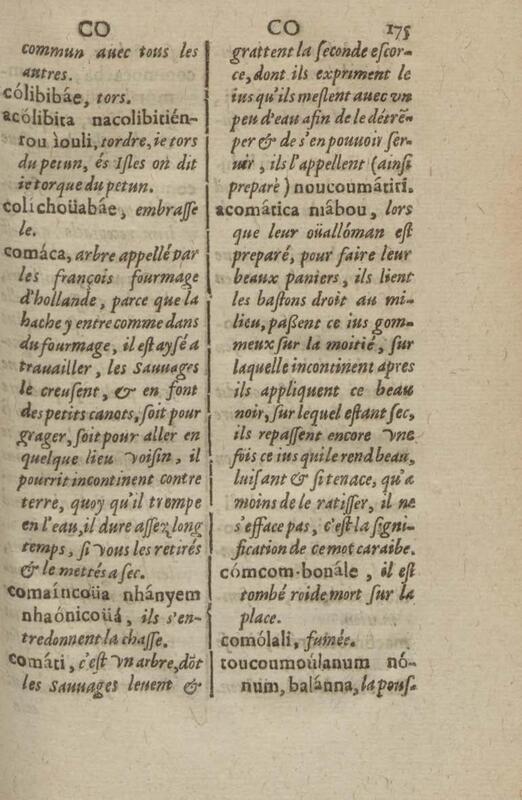 CO
CO
175
commun auec tous les
autres.
cólibibáe, tors.
acólibita nacolibitién-
rou ìouli, tordre, ie tors
du petun, és Isles on dit
ie torque du petun.
colichoüabáe, embrasse
le.
comáca, arbre appellé par
les françois fourmage
d'hollande, parce que la
hache y entre comme dans
du fourmage, il est aysé a
trauailler, les Sauuages
le creusent, & en font
des petits canots, soit pour
grager, soit pour aller en
quelque lieu voisin, il
pourrit incontinent contre
terre, quoy qu'il trempe
en l'eau, il dure assez long
temps, si vous les retirés
& le mettés a sec.
comaíncoüa nhányem
nhaónicoüá, ils s'en-
tredonnent la chasse.
comáti, c'est vn arbre, dōt
les Sauuages leuent &
grattent la seconde escor-
ce, dont ils expriment le
ius qu'ils meslent auec vn
peu d'eau afin de le détrē-
per & de s'en pouuoir ser-
uir, ils l'appellent (ainsi
preparè) noucoumátiri.
acomática niábou, lors
que leur oüallóman est
preparé, pour faire leur
beaux paniers, ils lient
les bastons droit au mi-
lieu, passent ce ius gom-
meux sur la moitié, sur
laquelle incontinent apres
ils appliquent ce beau
noir, sur lequel estant sec,
ils repassent encore vne
fois ce ius qui le rend beau,
luisant & si tenace, qu'a
moins de le ratisser, il ne
s'efface pas, c'est la signi-
fication de ce mot caraibe.
cómcom-bonále, il est
tombé roide mort sur la
place.
comólali, fumée.
toucoumoúlanum nó-
num, balánna, la pous-